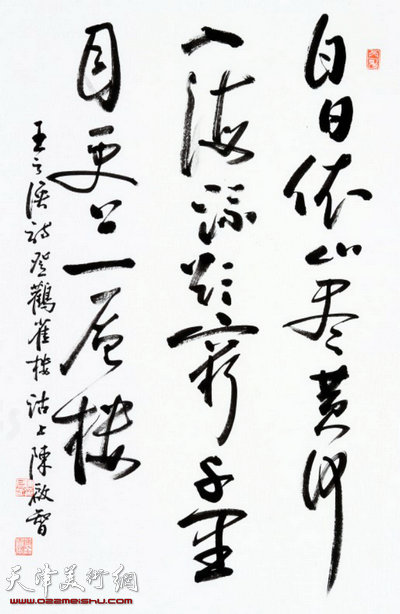 白日依山尽黄河
入海流欲窮千里
目更上一层楼
王之涣詩登鸛雀楼沽上陳啟智
天津美術網
www.022meishu.com